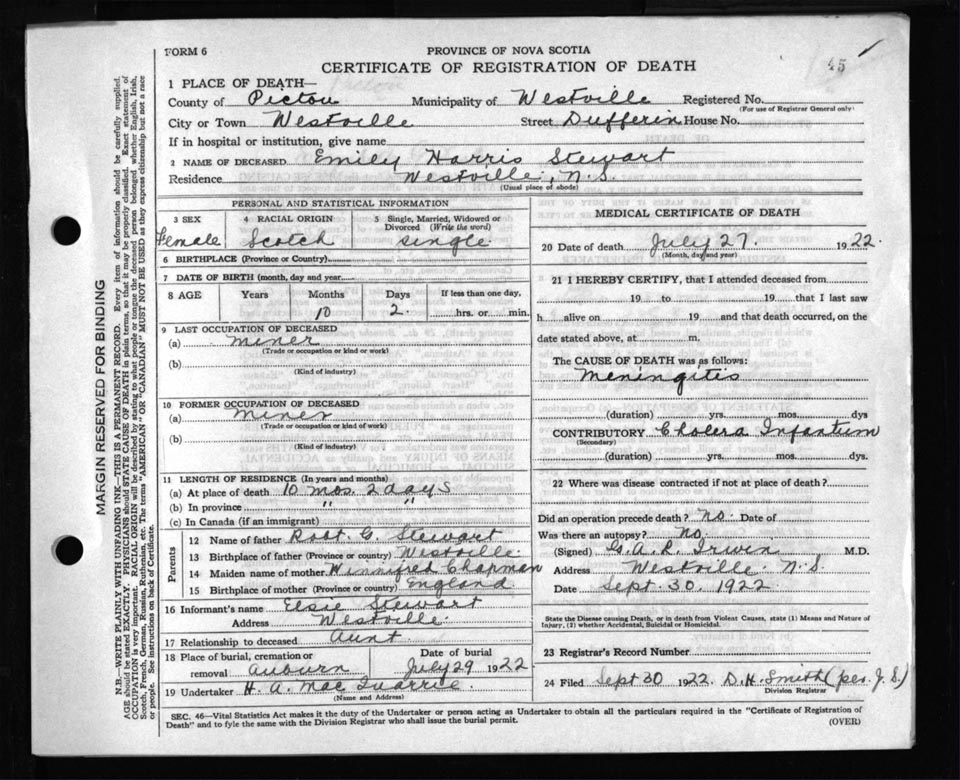 45
FORM 6
PROVINCE OF NOVA SCOTIA
CERTIFICATE OF REGISTRATION OF DEATH
1 PLACE OF DEATH—
County of Pictou Municipality of Westville Registered No.
(For use of Registrar General only)
City or Town Westville Street Dufferin House No.
If in hospital or institution, give name
2 NAME OF DECEASED Emily Harris Stewart
Residence Westville, N.S.
(Usual place of abode)
PERSONAL AND STATISTICAL INFORMATION
3 SEX 4 RACIAL ORIGIN 5 Single, Married, Widowed or Divorced (Write the word)
Female Scotch single
6 BIRTHPLACE (Province or Country)
7 DATE OF BIRTH (month, day and year)
8 AGE Years Months Days If less than one day,
10 2 hrs. or min.
9 LAST OCCUPATION OF DECEASED
(a) miner
(Trade or occupation or kind or work)
(b)
(Kind of industry)
10 FORMER OCCUPATION OF DECEASED
(a) Miner
(Trade or occupation or kind of work)
(b)
(Kind of industry)
11 LENGTH OF RESIDENCE (In years and months)
(a) At place of death 10 mos. 2 days
(b) In province " "
(c) In Canada (if an immigrant)
Parents
12 Name of father Robt. G. Stewart
13 Birthplace of father (Province or country) Westville
14 Maiden name of mother Winnifred Chapman
15 Birthplace of mother (Province or country) England
16 Informant's name Elsie Stewart
Address Westville
17 Relationship to deceased Aunt
18 Place of burial, cremation or removal Auburn Date of burial July 29 1922
19 Undertaker H. A. MacQuarrie
(Name and Address)
MEDICAL CERTIFICATE OF DEATH
20 Date of death July 27. 1922.
(Month, day and year)
21 I HEREBY CERTIFY, that I attended deceased from
19 to 19 that I last saw
h alive on 19 and that death occurred, on the
date stated above, at m.
The CAUSE OF DEATH was as follows:
Meningitis
(duration) yrs. mos. dys
CONTRIBUTORY Cholera Infantum
(Secondary)
(duration) yrs. mos. dys.
22 Where was disease contracted if not at place of death?
Did an operation precede death? No. Date of
Was there an autopsy? No.
(Signed) G.A.R. Irwin M.D.
Address Westville N.S.
Date Sept. 30. 1922.
State the Disease causing Death, or in death from Violent Causes, state (1) Means and Nature of Injury, (2) whether Accidental, Suicidal or Homicidal.
23 Registrar's Record Number
24 Filed Sept 30 1922. D.H. Smith (per J.S.)
Division Registrar
SEC. 46—Vital Statistics Act makes it the duty of the Undertaker or person acting as Undertaker to obtain all the particulars required in the "Certificate of Registration of
Death" and to fyle the same with the Division Registrar who shall issue the burial permit.
(OVER)
MARGIN RESERVED FOR BINDING
N.B.—WRITE PLAINLY WITH UNFADING INK—THIS IS A PERMANENT RECORD. Every item of information should be carefully supplied.
AGE should be stated EXACTLY. PHYSICIANS should STATE CAUSE OF DEATH in plain terms, so that it may be properly classified. Exact statement of
OCCUPATION is very important. RACIAL ORIGIN will be described by stating to what people or tongue the deceased person belonged whether English, Irish,
Scotch, French, German, Russian, Ruthenian, etc. The terms "AMERICAN" OR "CANADIAN" MUST NOT BE USED as they express citizenship but not a race
or people. See instructions on back of Certificate.